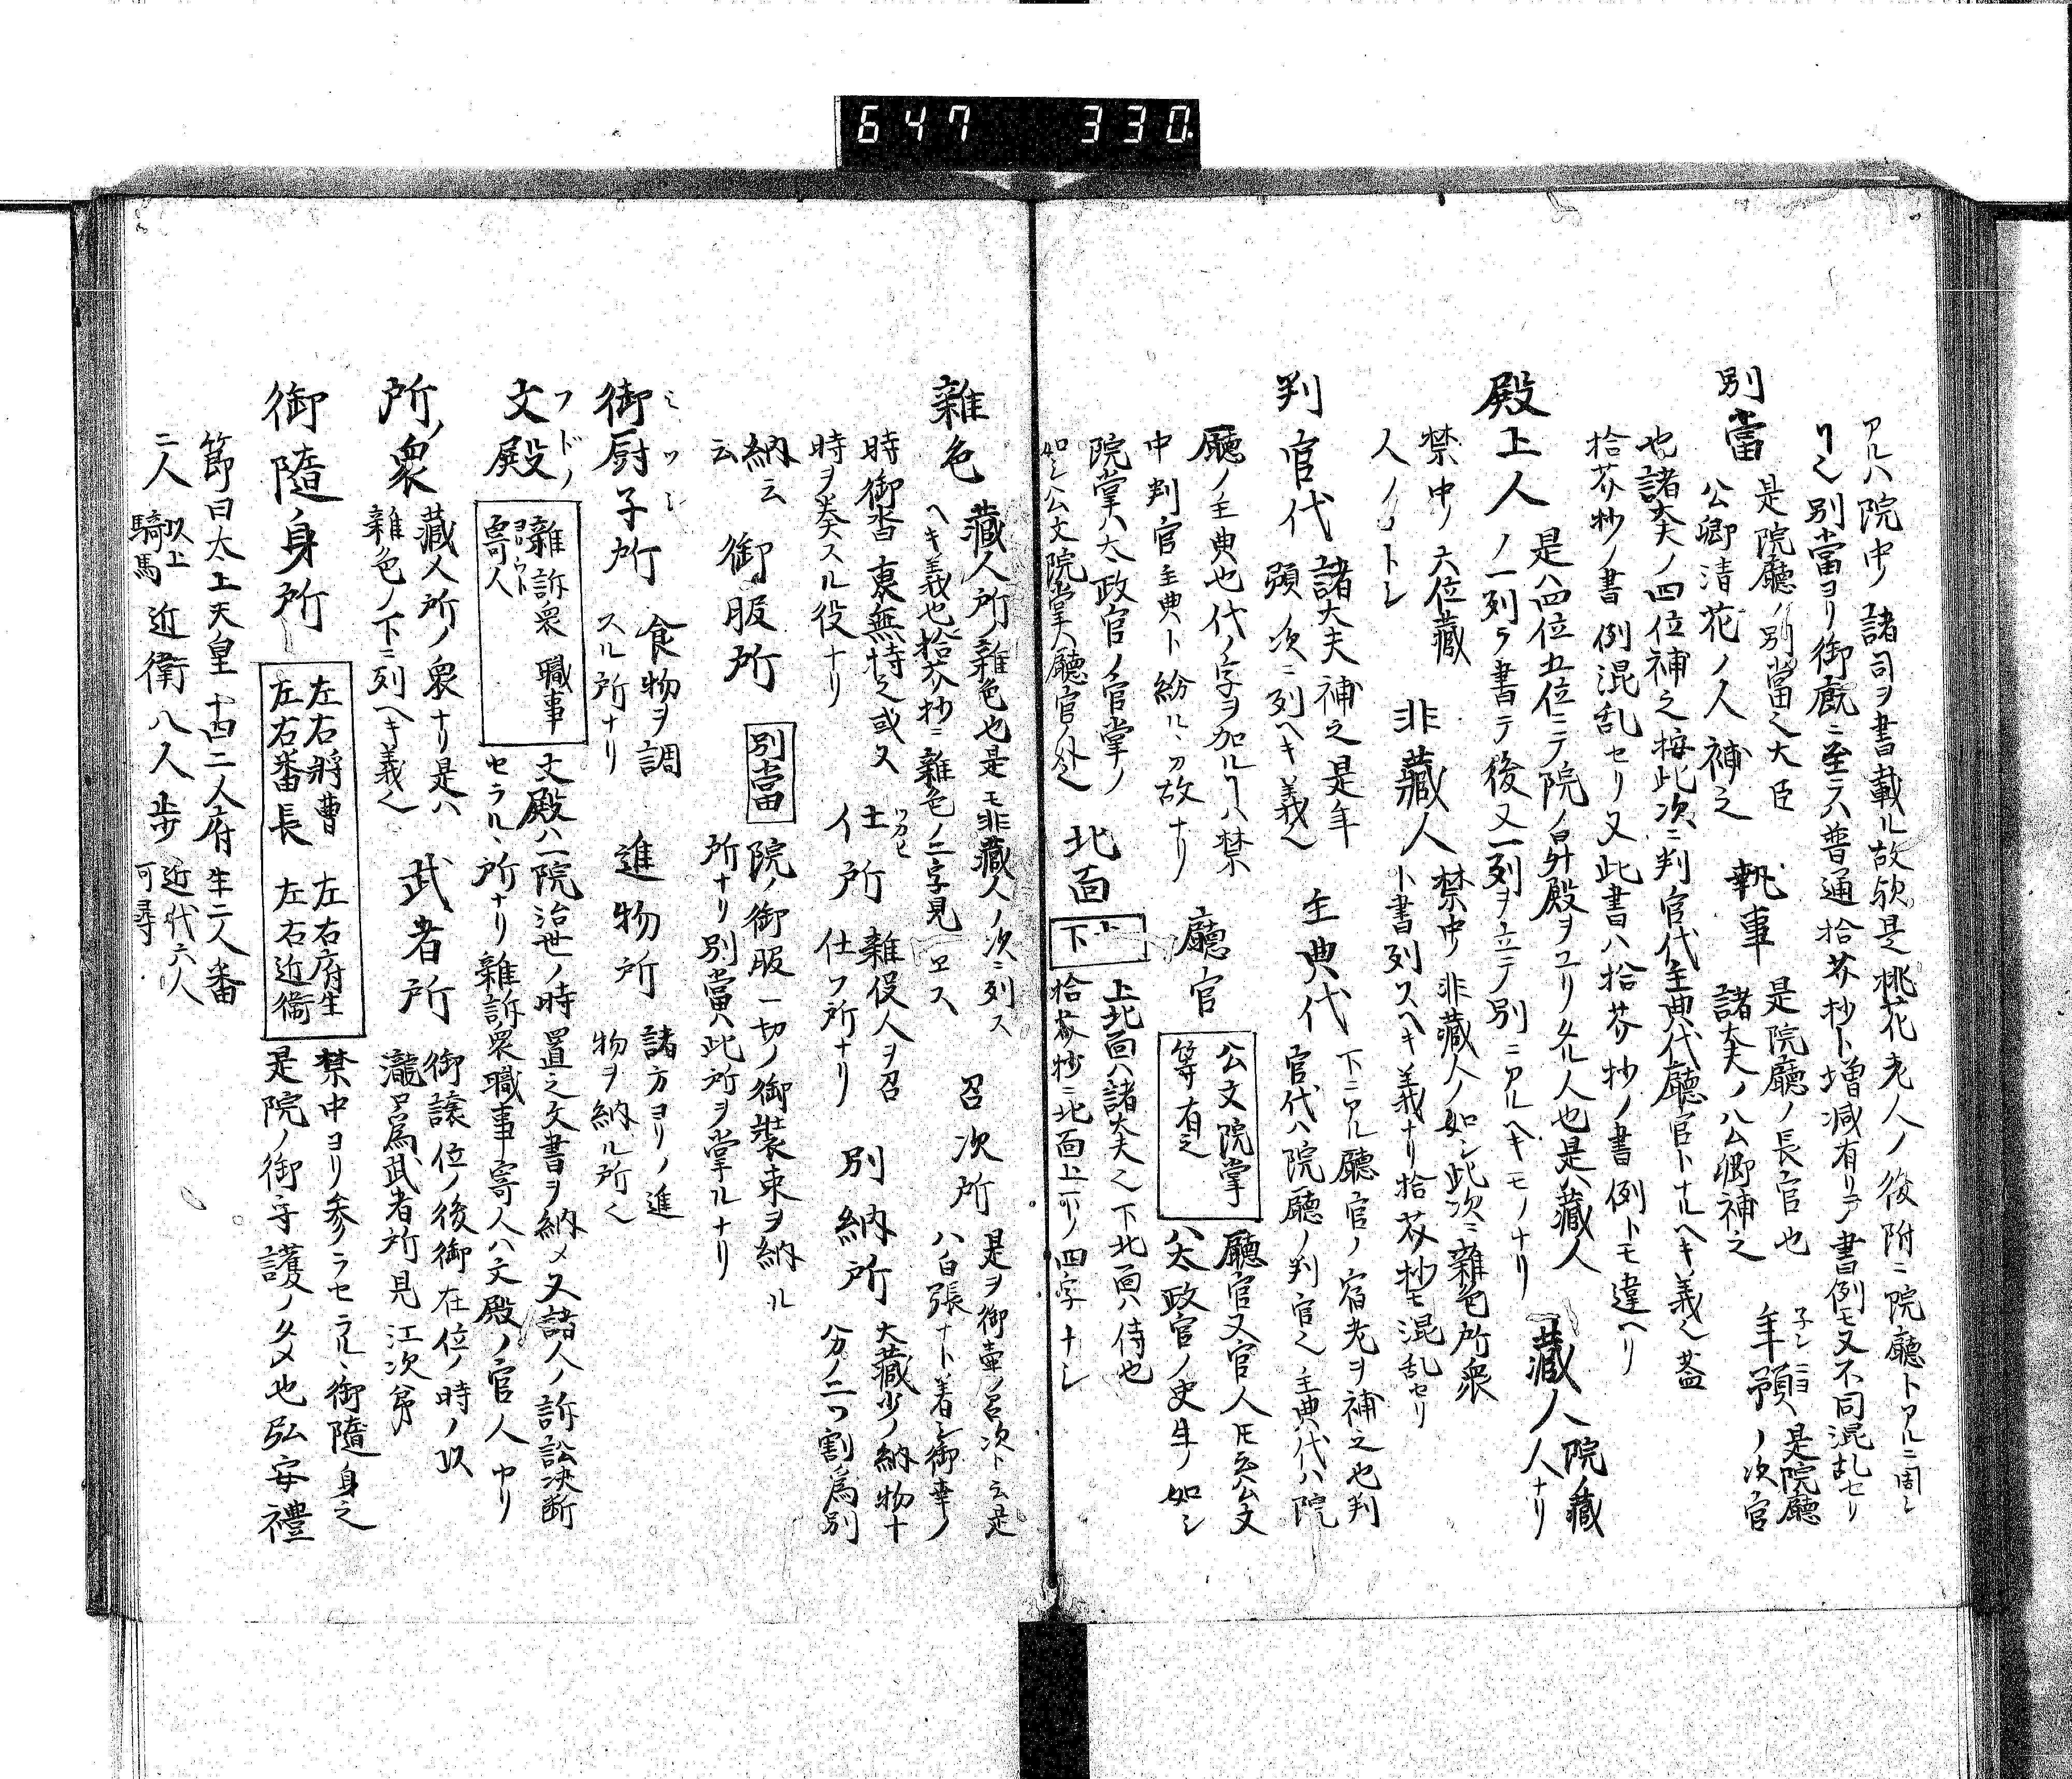 647 330
アルハ院中ノ諸司ヲ書載ル故欤是桃花老人ノ後附ニ院廳トアルニ同シ
別當ヨリ御厩ニ至ニハ普通拾芥抄ト増減有リテ書例モ又不同混乱セリ
別當 是院廳ノ別當也大臣
公卿清花ノ人補之 執事 是院廳ノ長官也
諸大夫ノ八公卿補之 年預 是院廳
ノ次官
也諸大夫ノ四位補之按此次ニ判官代主典代廳官トナルヘキ義也蓋
拾芥抄ノ書例混乱セリ又此書ハ拾芥抄ノ書例トモ違ヘリ
殿上人 是ハ四位五位ニテ院ノ昇殿ヲユリタル人也是ハ藏人
ノ一列ヲ書テ後又一列ヲ立テ別ニアルヘキモノナリ 藏人 院ノ藏
人ナリ
禁中ノ六位藏
人ノコトシ 非藏人 禁中ノ非藏人ノ如シ此次ニ雜色所衆
ト書列スヘキ義ナリ拾芥抄モ混乱セリ
判官代 諸大夫補之是年
預ノ次ニ列ヘキ義也 主典代 下ニアル廳官ノ宿老ヲ補之也判
官代ハ院廳ノ判官也主典代ハ院
廳ノ主典也代ノ字ヲ加ルハ禁
中判官主典ト紛ルヽカ故ナリ 廳官 公文院掌
等有之 廳官又官人トモ云公文
ハ太政官ノ史生ノ如シ
院掌ハ太政官ノ官掌ノ
如シ公文院掌ハ廳官ノ外也 北面 上
下 上北面ハ諸大夫也下北面ハ侍也
拾芥抄ニ北面上下ノ四字ナシ
雜色 藏人所ノ雜色也是モ非藏人ノ次ニ列ス
ヘキ義也拾芥抄ニ雜色ノ二字見ヱス 召次所 是ヲ御壷ノ召次ト云是
ハ白張ナト着シ御幸ノ
時御沓裏無持之或又
時ヲ奏スル役ナリ 仕所 雜役人ヲ召
仕フ所ナリ 別納所 大藏少ノ納物十
分ノ二ツ割為別
納云
云 御服所 別當 院ノ御服一切ノ御裝束ヲ納ル
所ナリ別當ハ此所ヲ掌ルナリ
御厨子所 食物ヲ調
スル所ナリ 進物所 諸方ヨリノ進
物ヲ納ル所也
文殿 雜訴衆 職事
寄人 文殿ハ一院治世ノ時置之文書ヲ納メ又諸人ノ訴訟決断
セラルヽ所ナリ雜訴衆職事寄人ハ文殿ノ官人ナリ
所ノ衆 藏人所ノ衆ナリ是ハ
雜色ノ下ニ列ヘキ義也 武者所 御譲位ノ後御在位ノ時ノ以
瀧口為武者所見江次第
御隨身所 左右將曹 左右府生
左右番長 左右近衞 禁中ヨリ参ラセラルヽ御隨身也
是院ノ御守護ノタメ也弘安禮
節曰太上天皇十四二人府生二人番
二人以上
騎馬 近衛八人歩 近代六人
可尋